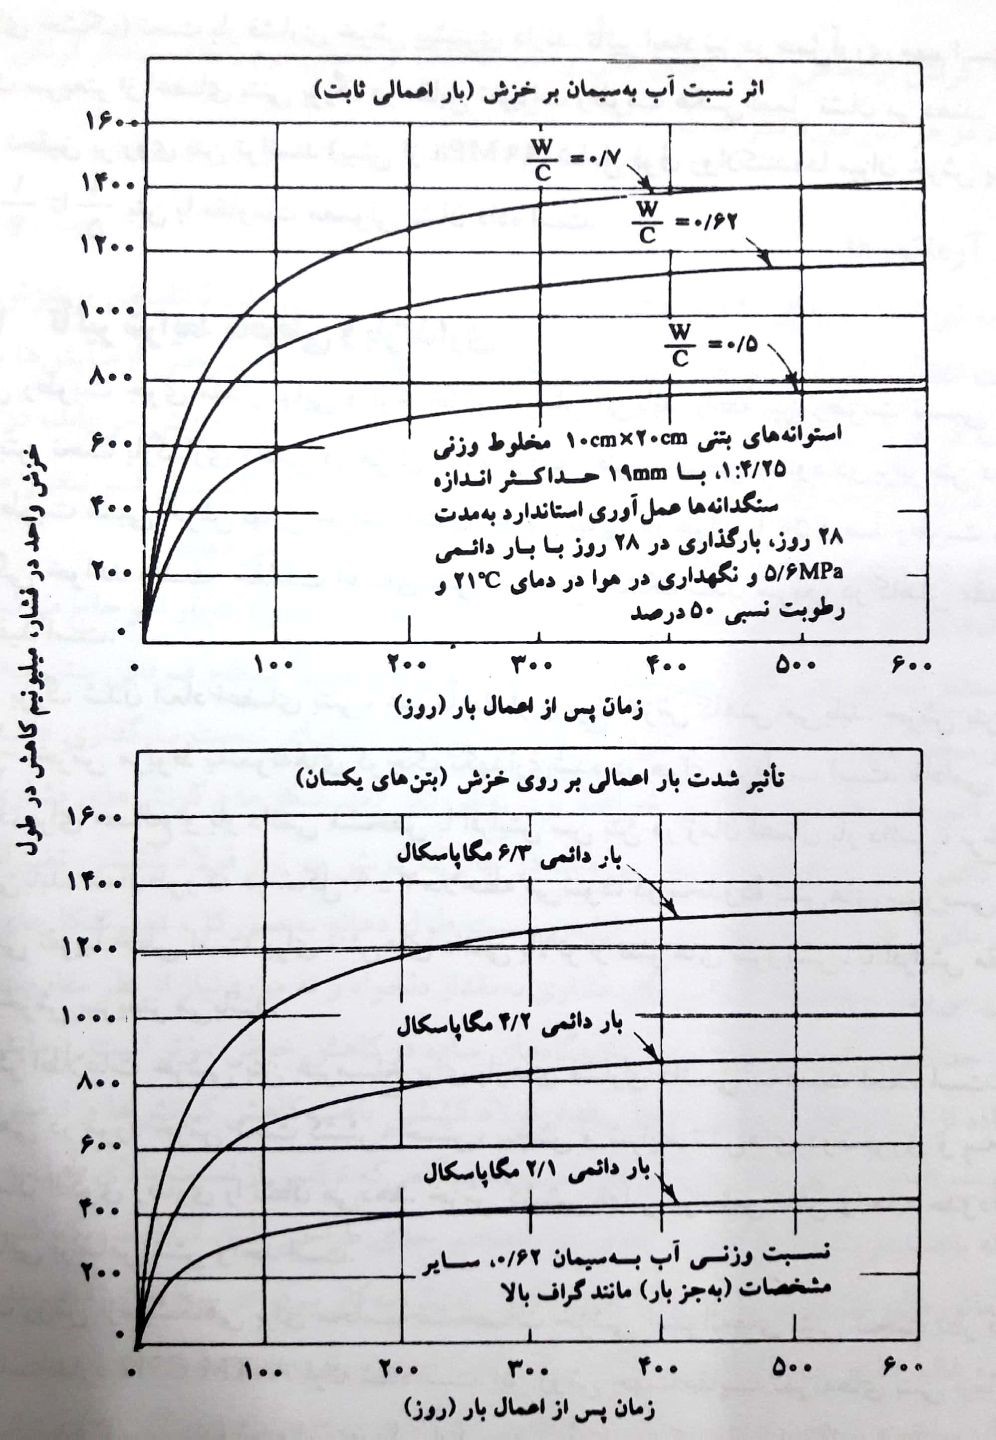 اثر نسبت آب به‌سیمان بر خزش (بار اعمالی ثابت)
۱۶۰۰
۱۴۰۰
۱۲۰۰
۱۰۰۰
۸۰۰
۶۰۰
۴۰۰
۲۰۰
۰
W/C =۰/۷
W/C =۰/۶۲
W/C =۰/۵
استوانه‌های بتنی ۱۰cm×۲۰cm مخلوط وزنی
۱:۴/۲۵، بـا ۱۹mm حداکـثر انـدازه
سنگدانه‌ها عمل‌آوری استاندارد به‌مدت
۲۸ روز، بارگذاری در ۲۸ روز بـا بـار دائـمی
۵/۶MPa و نگهداری در هوا در دمای ۲۱°C و
رطوبت نسبی ۵۰ درصد
۰ ۱۰۰ ۲۰۰ ۳۰۰ ۴۰۰ ۵۰۰ ۶۰۰
زمان پس از اعمال بار (روز)
خزش واحد در فشار، میلیونیم کاهش در طول
تأثیر شدت بار اعمالی بر روی خزش (بتن‌های یکسان)
۱۶۰۰
۱۴۰۰
۱۲۰۰
۱۰۰۰
۸۰۰
۶۰۰
۴۰۰
۲۰۰
۰
بار دائمی ۶/۳ مگاپاسکال
بار دائمی ۴/۲ مگاپاسکال
بار دائمی ۲/۱ مگاپاسکال
نسبت وزنـی آب بـه‌سیمان ۰/۶۲، سـایر
مشخصات (به‌جز بار) مانند گراف بالا
۰ ۱۰۰ ۲۰۰ ۳۰۰ ۴۰۰ ۵۰۰ ۶۰۰
زمان پس از اعمال بار (روز)